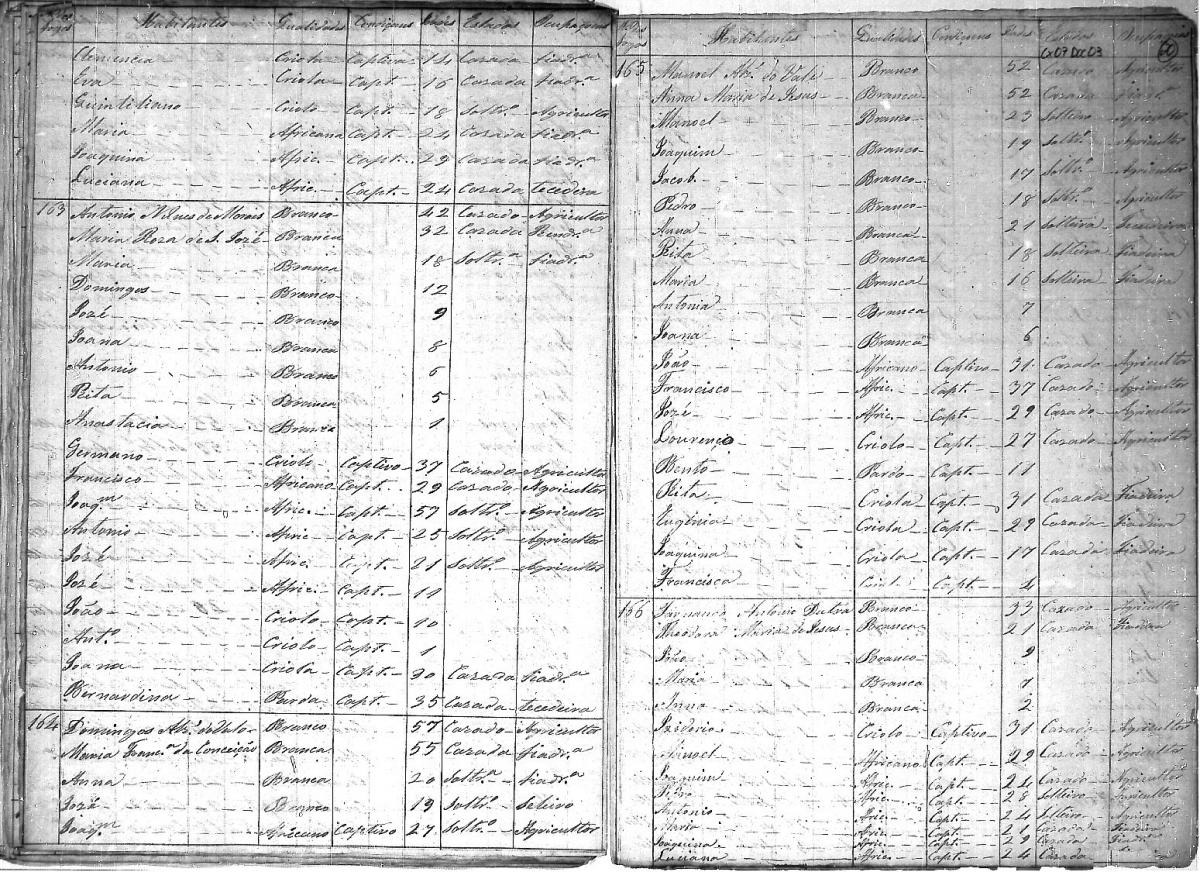 Fogos Habitantes Qualidades Condiçoens Idades Estados Ocupaçoens
Clemencia Criola Captiva 14 Cazada fiadr.ª
Eva Criola Capt. 16 Cazada fiadr.ª
Quintiliano Criolo Capt. 18 Soltr.º Agricultor
Maria Africana Capt. 24 Cazada fiadr.ª
Joaquina Afric. Capt. 29 Cazada fiadr.ª
Luciana Afric. Capt. 24 Cazada tecedeira
163 Antonio de Moraes Branco 42 Cazado Agricultor
Maria Roza de S. Jozé Branca 32 Cazada
Maria Branca 18 Soltr.ª fiadr.ª
Domingos Branco 12
Jozé Branco 9
Joana Branca 8
Antonio Branco 6
Rita Branca 5
Anastacia Branca 1
Germano Criolo Captivo 37 Cazado Agricultor
Francisco Africano Capt. 29 Cazado Agricultor
Joaq.m Afric. Capt. 57 Soltr.º Agricultor
Antonio Afric. Capt. 25 Soltr.º Agricultor
Jozé Afric. Capt. 21 Soltr.º Agricultor
Jozé Afric. Capt. 11
João Criolo Capt. 10
Ant.º Criolo Capt. 1
Joana Criola Capt. 30 Cazada fiadr.ª
Bernardina Parda Capt. 35 Cazada tecedeira
164 Domingos Branco 57 Cazado Agricultor
Maria Franc.ª da Conceição Branca 55 Cazada fiadr.ª
Anna Branca 20 Soltr.ª fiadr.ª
Jozé Branco 19 Soltr.º Seleiro
Joaq.m Africano Captivo 27 Soltr.º Agricultor
Fogos Habitantes Qualidades Condiçoens Idades Estados Ocupaçoens
60
165 Manoel do Vale Branco 52 Cazado Agricultor
Anna Maria de Jesus Branca 52 Cazada fiadr.ª
Manoel Branco 23 Solteiro Agricultor
Joaquim Branco 19 Soltr.º Agricultor
Jacob Branco 17 Soltr.º Agricultor
Pedro Branco 18 Soltr.º Agricultor
Anna Branca 21 Solteira
Rita Branca 18 Solteira Fiadeira
Maria Branca 16 Solteira Fiadeira
Antonia Branca 7
Joana Branca 6
João Africano Captivo 31 Cazado Agricultor
Francisco Afric. Capt. 37 Cazado Agricultor
Jozé Afric. Capt. 29 Cazado Agricultor
Lourenço Criolo Capt. 27 Cazado Agricultor
Bento Pardo Capt. 11
Rita Criola Capt. 31 Cazada Fiadeira
Eugenia Criola Capt. 29 Cazada Fiadeira
Joaquina Criola Capt. 17 Cazada Fiadeira
Francisca Criol. Capt. 4
166 Fernando Antonio Dutra Branco 33 Cazado Agricultor
Theodora Maria de Jesus Branca 21 Cazada Fiadeira
João Branco 9
Maria Branca 7
Anna Branca 2
Criolo Captivo 31 Cazado Agricultor
Manoel Africano Capt. 29 Cazado Agricultor
Joaquim Afric. Capt. 24 Cazado Agricultor
Pedro Afric. Capt. 28 Solteiro Agricultor
Antonio Afric. Capt. 24 Solteiro Agricultor
Maria Afric. Capt. 21 Cazada Fiadeira
Joaquina Afric. Capt. 29 Cazada Fiadr.ª
Luciana Afric. Capt. 24 Cazada